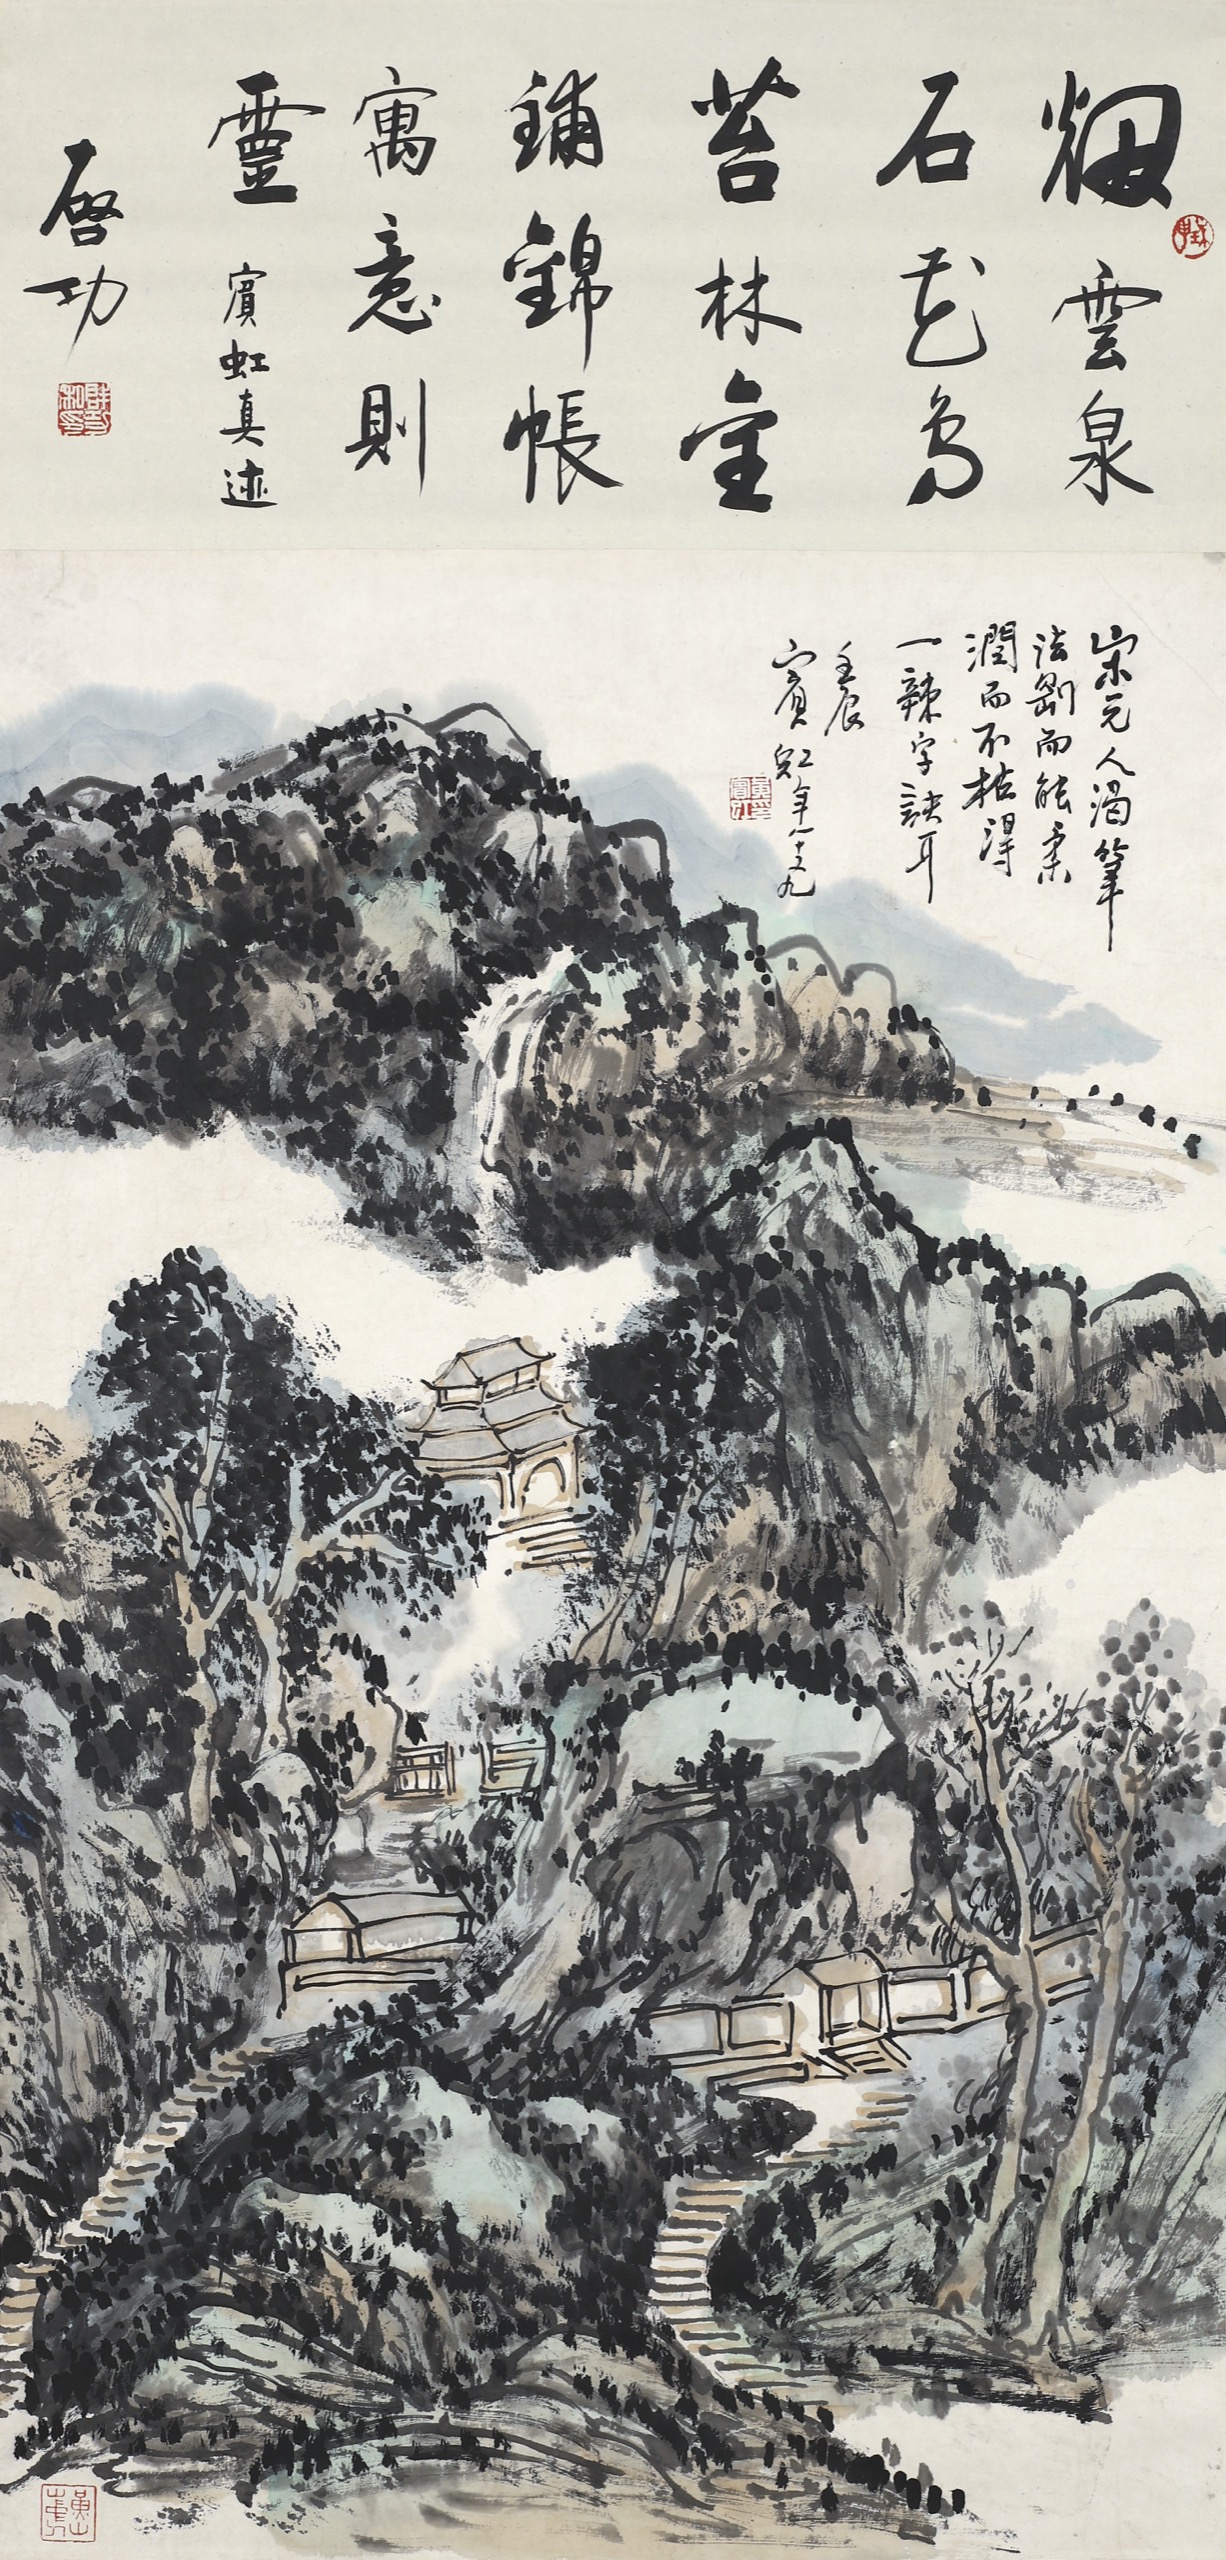 烟雲泉
石花鳥
苔林金
鋪錦帳
寓意則
靈 賓虹真迹
啓功
宋元人渴筆
法剛而能柔
潤而不枯得
一辣字訣耳
壬辰
賓虹年八十又九